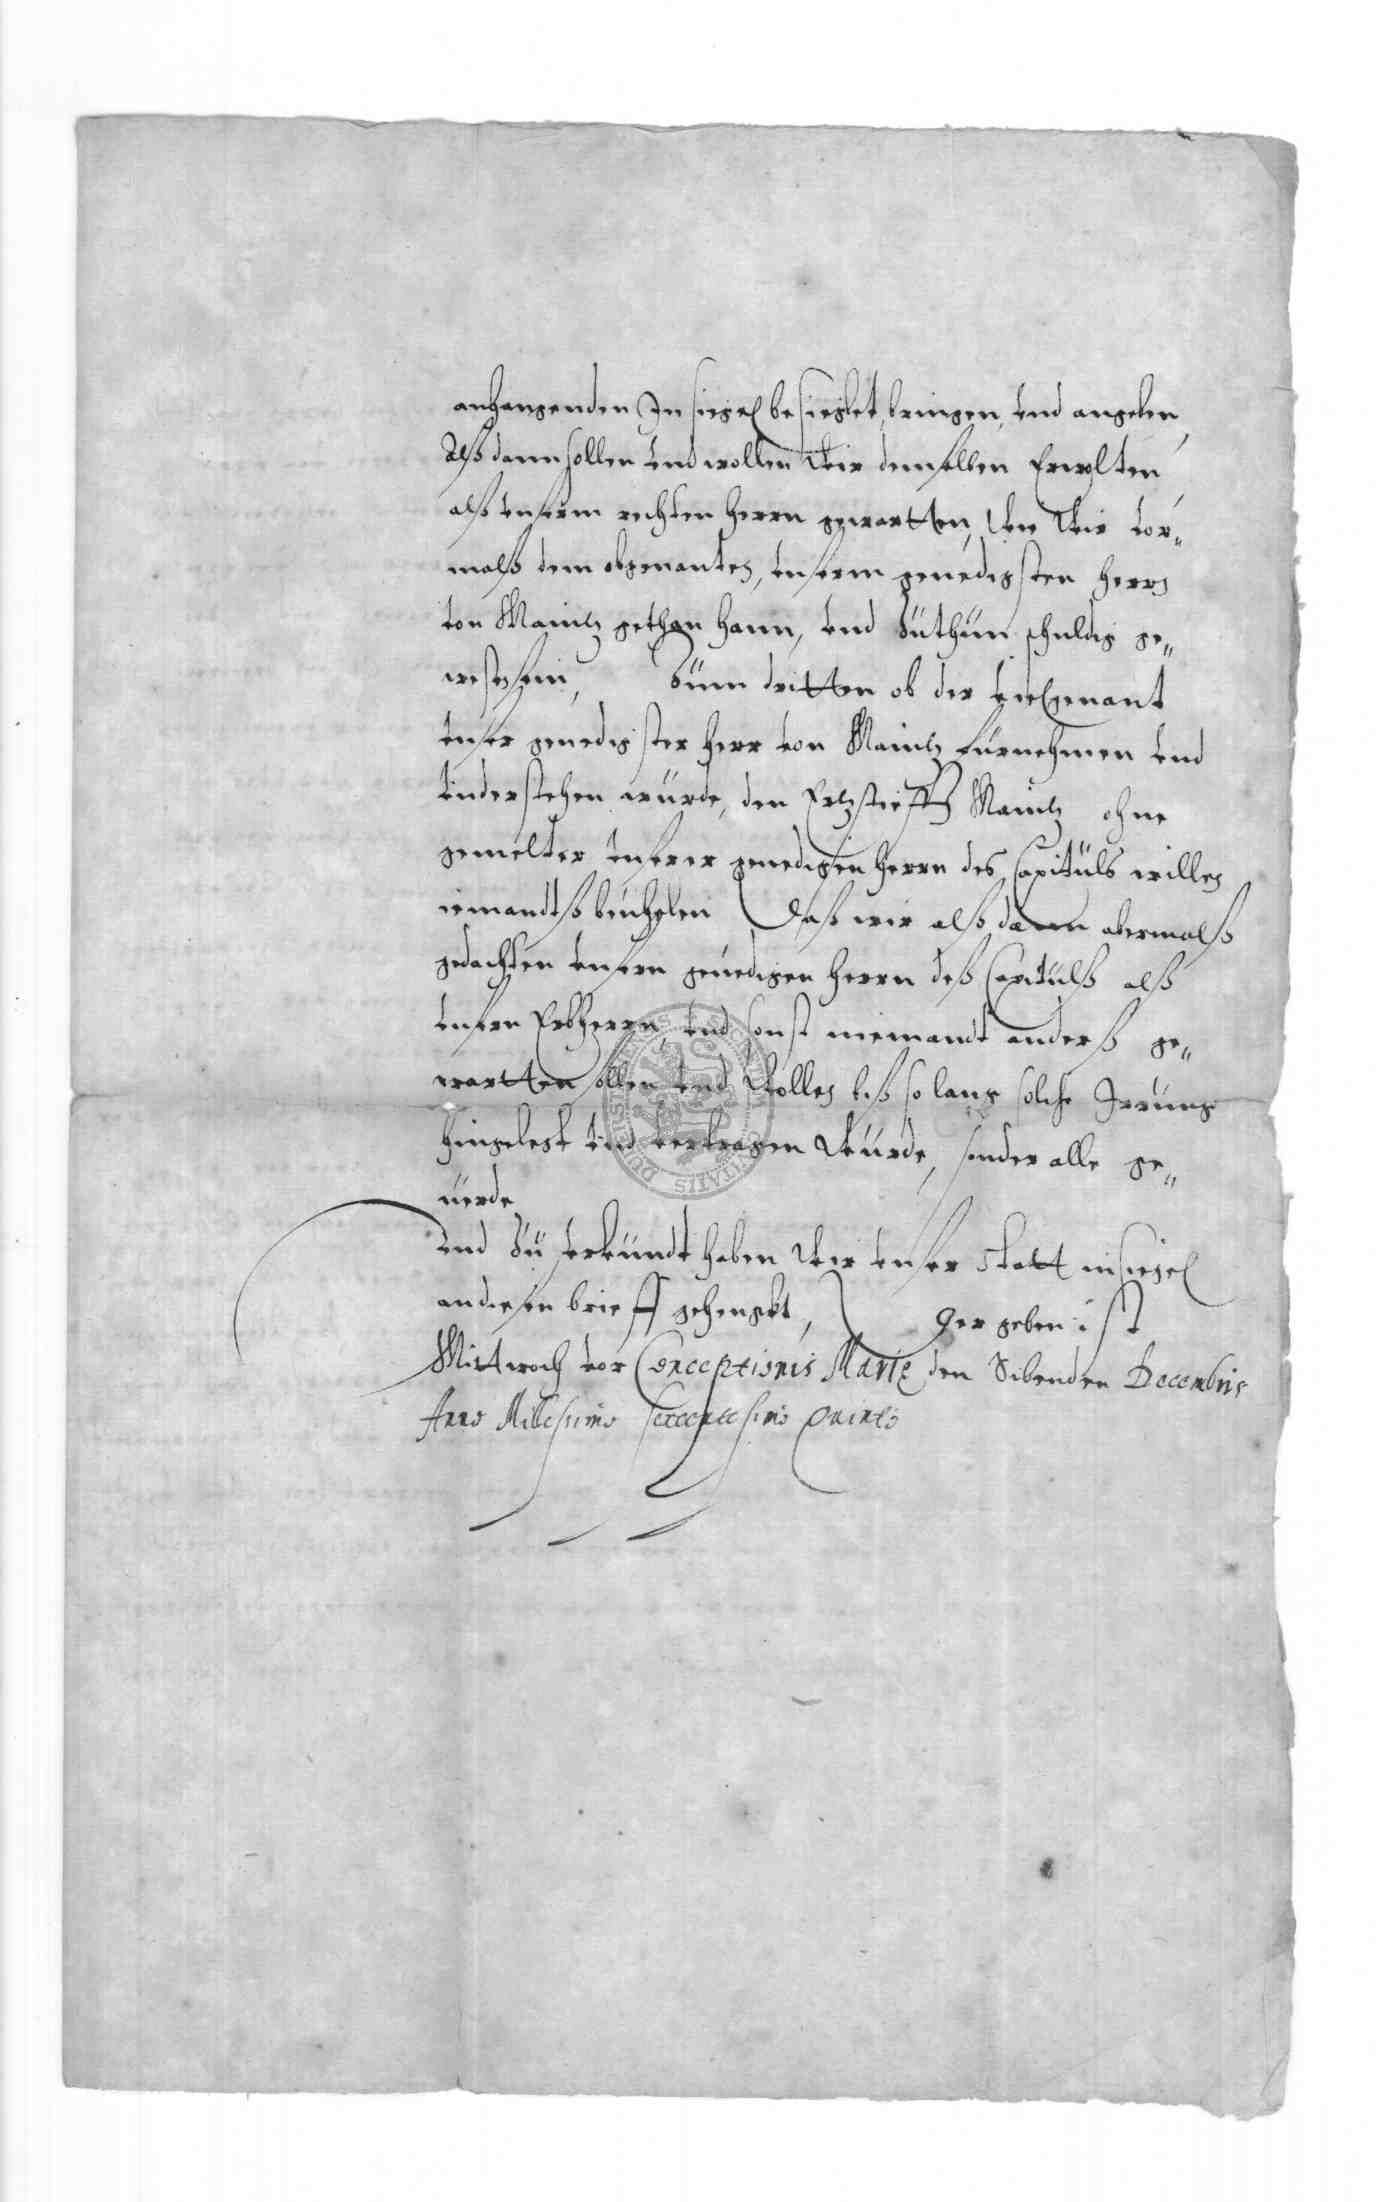 anhangenden Insiegel besieglet, bringen, vnd angeben,
Alß dann sollen vnd wollen Wir demselben Erwolten
alß vnserm rechten Herrn gewartten, Wie Wir vor„
malß dem obgenanten, vnserm genedigsten Herrn
von Maintz gethan hann, vnd zuthun schuldig ge„
west sein, Zum dritten ob der vielgenant
vnser genedigster Herr von Maintz fürnehmen vnd
vnderstehen würde, den Ertzstiefft Maintz ohne
gemelter vnserer genedigen Herrn des Capituls willen
iemandtß beuhelen Daß wir alß dann abermalß
gedachten vnsern genedigen Herrn deß Capitulß alß
vnsern Erbherrn, vnd sonst niemandt anderß ge„
wartten sollen vnd Wollen biß so lang solche Irrung
hingelegt vnd vertragen Würde, sonder alle ge„
uerde
vnd zu Vrkundt haben Wir vnser Statt insiegel
an diesen brieff gehenckt, Der geben ist
Mittwoch vor Conceptionis Mariæ den Sibenden Decembris
Anno Millesimo sexcentesimo Quinto
SIGILLUM CIVITATIS DUDERSTADENSIS